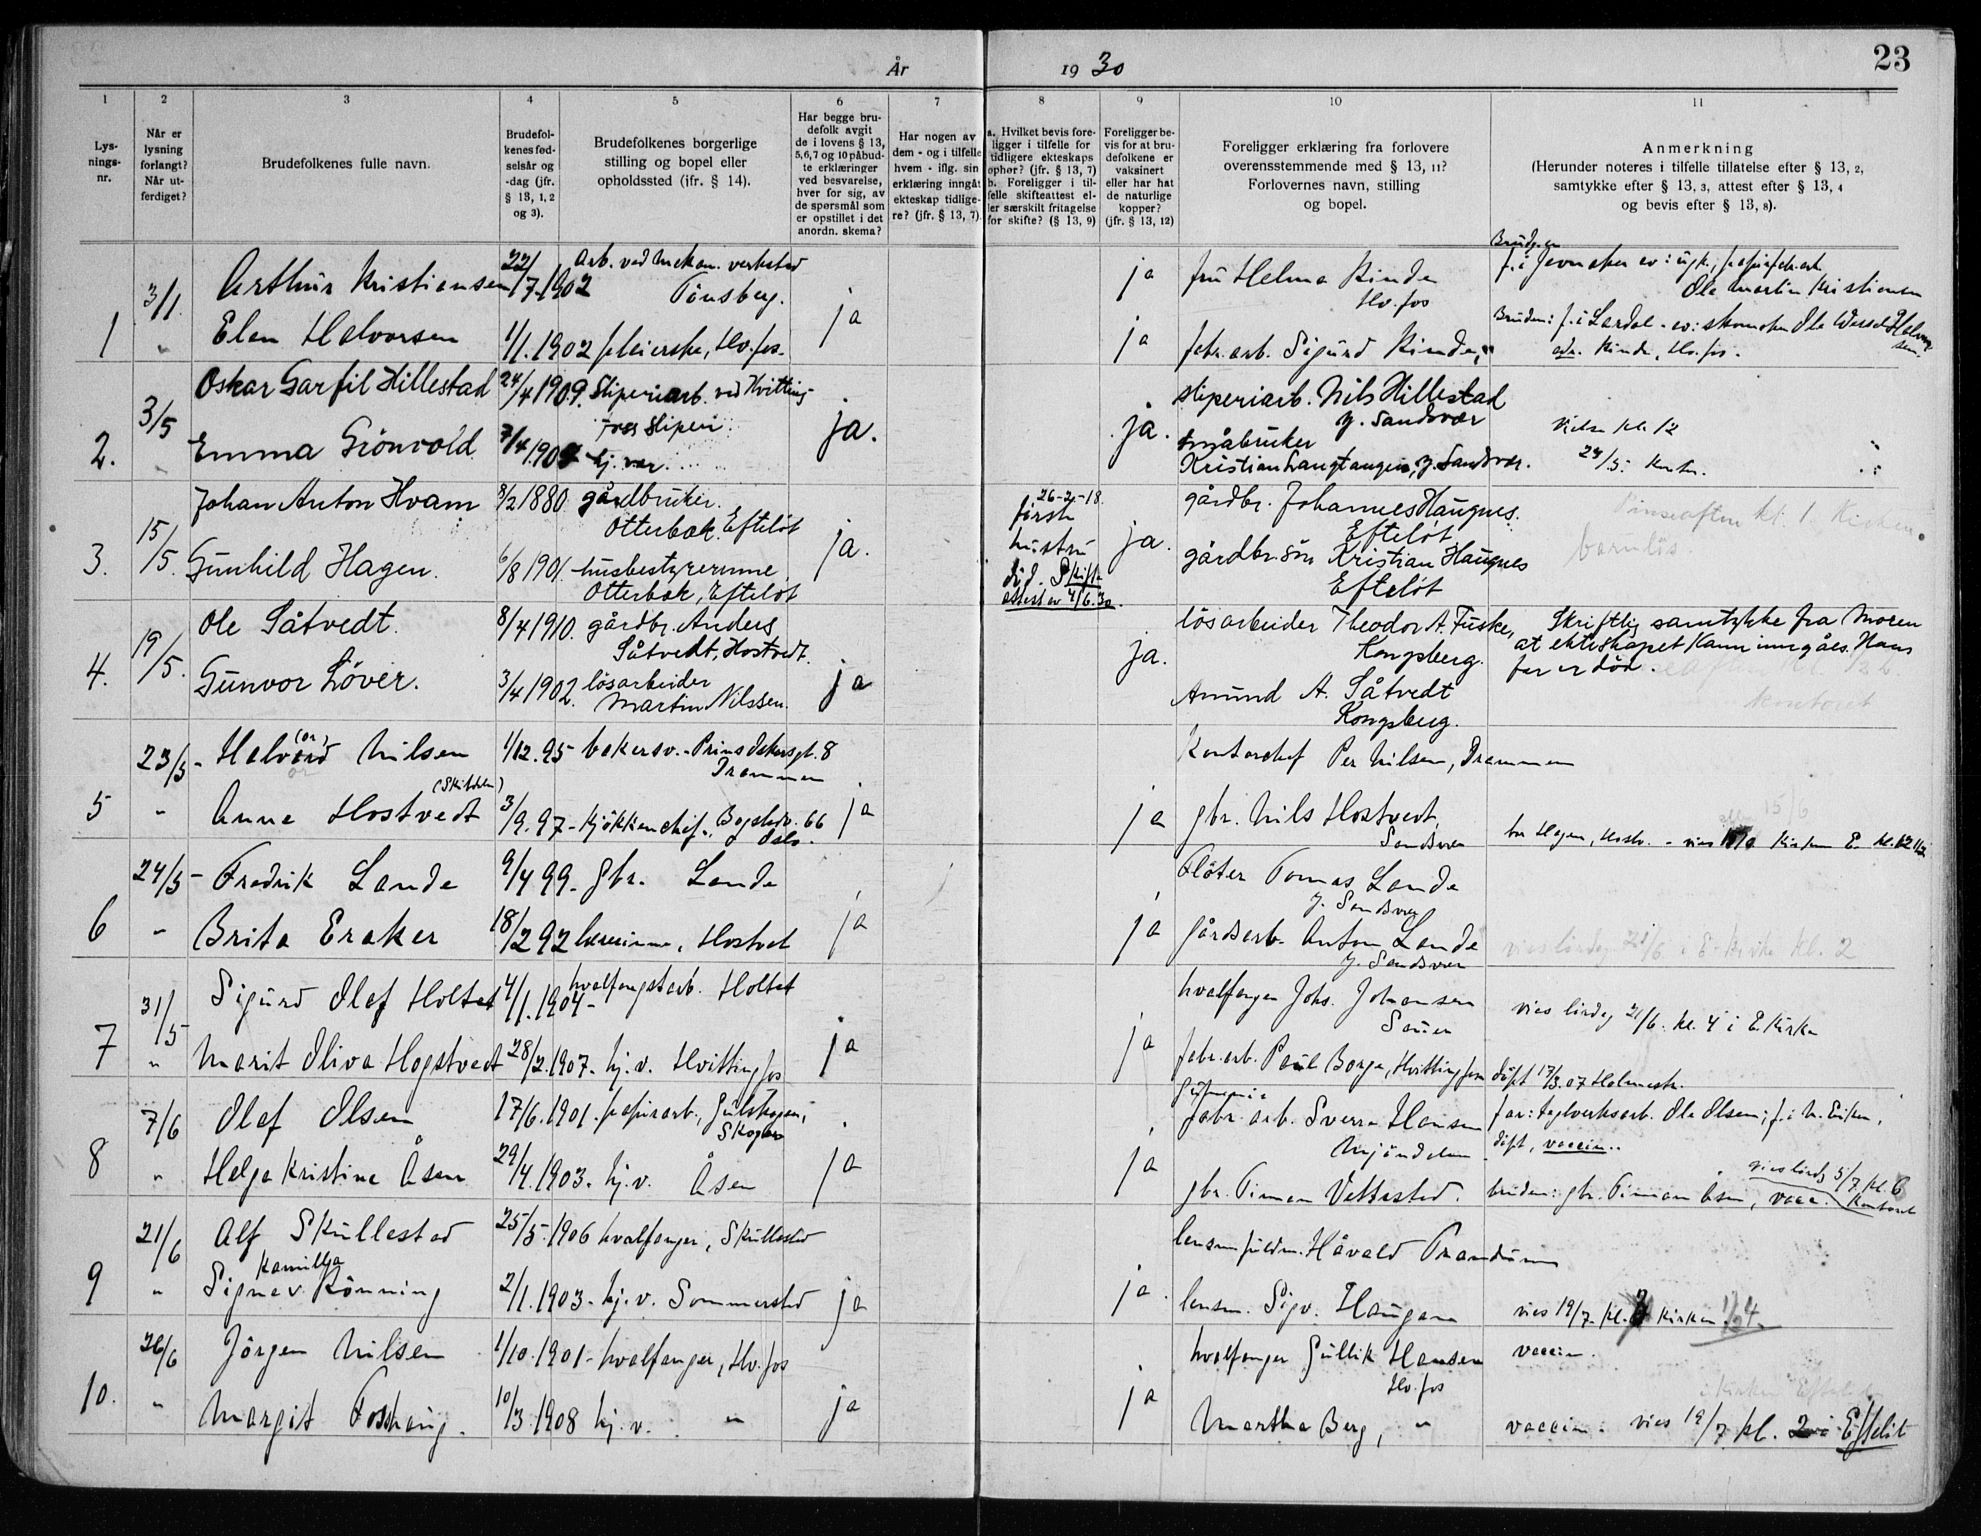 År 1930
23
1 2 3 4 5 6 7 8 9 10 11
Lys-
nings-
nr.
Når er
lysning
forlangt?
Når ut-
ferdiget?
Brudefolkenes fulle navn.
Brudefol-
kenes fød-
selsår og
-dag (jfr.
§ 13, 1, 2
og 3).
Brudefolkenes borgerlige
stilling og bopel eller
opholdssted (jfr. § 14).
Har begge bru-
defolk avgit
de i lovens § 13,
5, 6, 7 og 10 påbud-
te erklæringer
ved besvarelse,
hver for sig, av
de spørsmål som
er opstillet i det
anordn. skema?
Har nogen av
dem - og i tilfelle
hvem - iflg. sin
erklæring inngåt
ekteskap tidlige-
re? (jfr. § 13, 7).
a. Hvilket bevis fore-
ligger i tilfelle for
tidligere ekteskaps
ophør? (jfr. § 13, 7)
b. Foreligger i til-
felle skifteattest el-
ler særskilt fritagelse
for skifte? (§ 13, 9)
Foreligger be-
vis for at bru-
defolkene er
vaksinert
eller har hat
de naturlige
kopper?
(jfr. § 13, 12)
Foreligger erklæring fra forlovere
overensstemmende med § 13, 11?
Forlovernes navn, stilling
og bopel.
Anmerkning
(Herunder noteres i tilfelle tillatelse efter § 13, 2,
samtykke efter § 13, 3, attest efter § 13, 4
og bevis efter § 13, 8).
1
3/1 Arthur Kristiansen 22/7-1902 Arb. ved mekan. verksted
Tønsberg.
" Elen Halvorsen 1/1.1902 pleierske, Hv.fos.
ja
ja fru Helma Rinde
Hv.fos
ja fabr.arb. Sigurd Rinde, "
Brudg.
f. i Jevnaker av: ugk., papirfabr.arb.
Ole Martin Kristiansen
Bruden: f. i Lardal - av: skomaker Ole Wessel Halvor-
sen.
adr. Rinde, Hv.fos.
2.
3/5 Oskar Garfil Hillestad 24/4 1909. Sliperiarb. ved Hvitting-
foss Sliperi
Emma Grönvold 7/4.190 hj.vær.
ja.
ja. sliperiarb. Nils Hillestad
y. Sandsvær
småbruker
Kristian Langtangen, y. Sandsvær.
Vies kl. 12
24/5. Kontr.
3.
15/5. Johan Anton Hvam 8/2 1880 gårdbruker.
Otterbæk. Efteløt
Gunhild Hagen. 6/8 1901. husbestyrerinne
Otterbæk, Efteløt
ja.
26-2-18.
første
hustru
död. Skifte
attest av 4/6.30.
ja. gårdbr. Johannes Haugnes.
Efteløt
gårdbr.sön Kristian Haugnes
Efteløt
Pinseaften kl. 1. Kirken.
barnløs.
4.
19/5. Ole Såtvedt. 8/4 1910. gårdbr. Anders
Såtvedt, Hostvedt.
Gunvor Löver. 3/4 1902. lösarbeider
Martin Nilssen.
ja
ja. lösarbeider Theodor A. Fuske,
Kongsberg.
Amund A. Såtvedt
Kongsberg.
Skriftlig samtykke fra moren
at ekteskapet kann inngåes. Hans
far er död.
kontoret
5
23/5 - Halvord (or) Nilsen 1/12.95 - bakersv. - Prins Oskarsgt. 8
Drammen
" Anne Hostvedt 3/9.97 - Kjökkenchef., Bogstadv. 66
Oslo.
ja
ja Kontorchef Per Nilsen, Drammen
gbr. Nils Hostvedt,
Sandsvær
15/6
bor Hagen, Hostv. - vies Kirken E. kl. 12 1/2
6
24/5 - Fredrik Lande 9/4 99 - gbr. Lande
" Brita Eraker 18/2 92 lærerinne, Hostvet
ja
ja Fløter Tomas Lande
y. Sandsvær
Gårdsarb. Anton Lande
y. Sandsvær
vies lördag 21/6. i E. Kirke kl. 2
7
31/5 Sigurd Olaf Holtet 4/1.1904 - hvalfangstarb. Holtet
" Marit Oliva Hogstvedt 28/2.1907 - hj.v. Hvittingfos
ja
ja hvalfanger Johs. Johansen
Sauen
fabr.arb. Paul Borge, Hvittingfoss
vies lördag 21/6. kl. 4 i E. Kirke
döpt 17/3.07 Holmestr.
8
7/6 Olaf Olsen 17/6.1901. papirarb., Gulskogen,
Skoger
" Helga Kristine Åsen 29/4.1903. hj.v. Åsen
ja
ja fabr. arb. Sverre Hansen
Mjöndalen
gbr. Timan Vettestad.
far: teglverksarb. Ole Olsen; f. i N. Eiker,
döpt, vaccin..
vies lördag 5/7 kl. 6
Kontoret
bruden: gbr. Timan Åsen, vacc.
9
21/6 Alf Skullestad 25/5.1906 hvalfanger, Skullestad
Kamilla
" Signe v. Rönning 2/1.1903 - hj.v. Sommerstad
ja
ja. lensm.fuldm. Håvald Trandum
lensm. Sigv. Haugan
vies 19/7. kl. Kirken
10.
26/6 Jörgen Nilsen 1/10.1901 - hvalfanger, Hv.fos
" Margit Fosshaug. 10/3.1908 hj.v. "
ja
ja hvalfanger Gullik Hansen
Hv.fos
Martha Berg, "
vaccin.
i Kirken Efteløt
vaccin. vies 19/7 kl. 2 i Efteløt